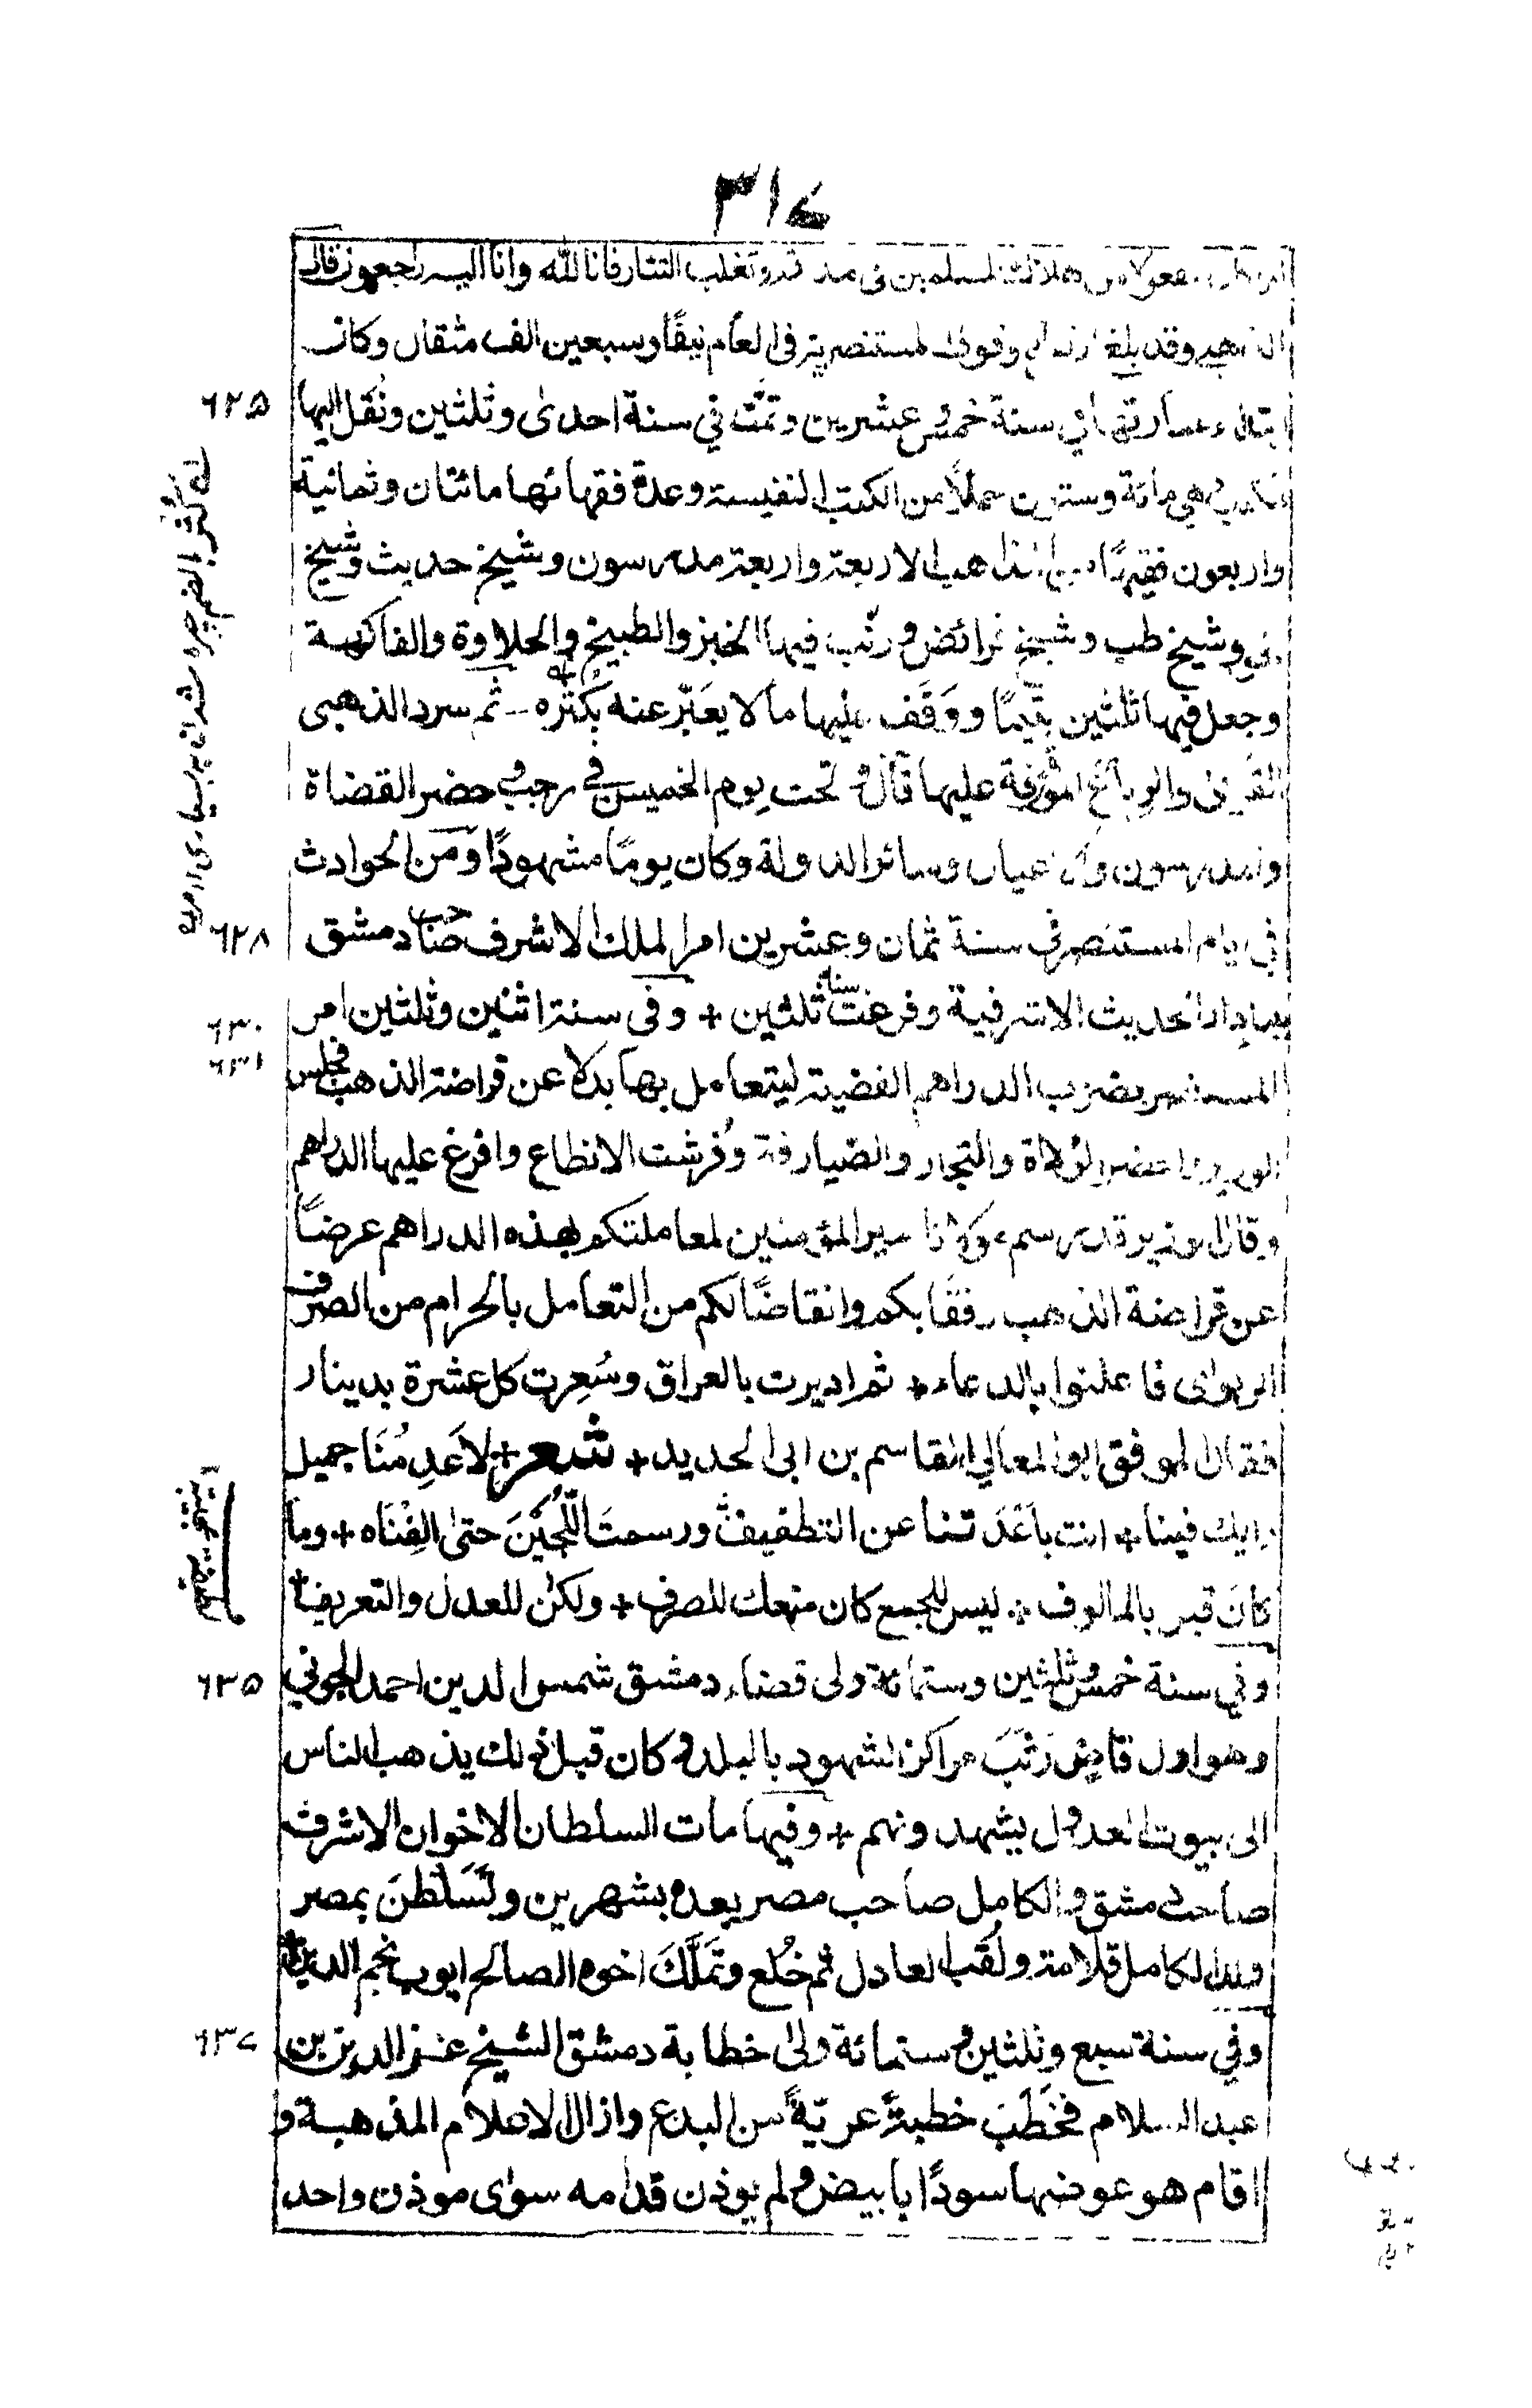 ٣١٤
المسلمين فى وتغلب التتار فانا لله وانا اليه راجعون قال
وقد بلغ وقوف المستنصرية فى العام نيفا وسبعين الف مثقال وكان
ابتداء عمارتها في سنة خمس وعشرين وتمّت في سنة احدى وثلثين ونُقل اليها
٦٢٥
الكتب وهي مائة وستون حملًا من الكتب النفيسة وعدة فقهائها مائتان وثمانية
واربعون فقيهًا من المذاهب الاربعة واربعة مدرسون وشيخ حديث وشيخ
نحو وشيخ طب وشيخ فرائض ورتّب فيها الخبز والطبيخ والحلاوة والفاكهة
وجعل فيها ثلثين يتيمًا ووَقَف عليها ما لا يعَبّر عنه بكُثره ثم سرد الذهبى
القرى والرباع الموقوفة عليها قال و تحت يوم الخميس فى رجب وحضر القضاة
والمدرسون والاعيان وسائر الدولة وكان يومًا مشهودًا ومن الحوادث
في ايام المستنصر في سنة ثمان وعشرين امر الملك الاشرف صاحب دمشق
٦٢٨
ببناء دار الحديث الاشرفية وفرغت سنة ثلثين + وفى سنة اثنين وثلثين امر
٦٣٠
٦٣١
المستنصر بضرب الدراهم الفضية ليتعامل بها بدلا عن قراضة الذهب فجلس
الوزير واحضر الولاة والتجار والصيارفة وفُرشت الانطاع وافرغ عليها الدراهم
وقال الوزير قد رسم مولانا امير المؤمنين لمعاملتكم بهذه الدراهم عرضًا
عن قراضة الذهب رفقًا بكم وانقاضًا لكم من التعامل بالحرام من الصرف
الربواى فاعلنوا بالدعاء + ثم اديرت بالعراق وسُعِرت كل عشرة بدينار
فقال الموفق ابو المعالي القاسم بن ابى الحديد + شعر + لا عَدِمُنَا جميل
رايك فينا + انت باعَدَتنا عن التطفيف ورسمتَ اللُّجَيْنَ حتى الِفْنَاه + وما
كانَ قبل بالمالوف + ليس للجمع كان منعك للصرف + ولكن للعدل والتعريف +
وفي سنة خمس وثلثين وستمائة ولى قضاء دمشق شمس الدين احمد الجوني
٦٣٥
وهو اول قاض رَتَّبَ مراكز الشهود بالبلد وكان قبل ذلك يذهب الناس
الى بيوت العدول يشهدونهم + وفيها مات السلطان الاخوان الاشرف
صاحب دمشق والكامل صاحب مصر بعده بشهرين وتَسَلْطَنَ بمصر
ولد الكامل قلامة ولُقب العادل ثم خُلع وتَمَلَّكَ اخوه الصالح ايوب نجم الدين
وفي سنة سبع وثلثين وستمائة ولى خطابة دمشق الشيخ عز الدين بن
٦٣٧
عبد السلام فخَطَبَ خطبةً عريّةً من البدع وازال الاعلام المذهبة و
اقام هو عوضها سودًا بابيض ولم يوذن قدامه سوى موذن واحد